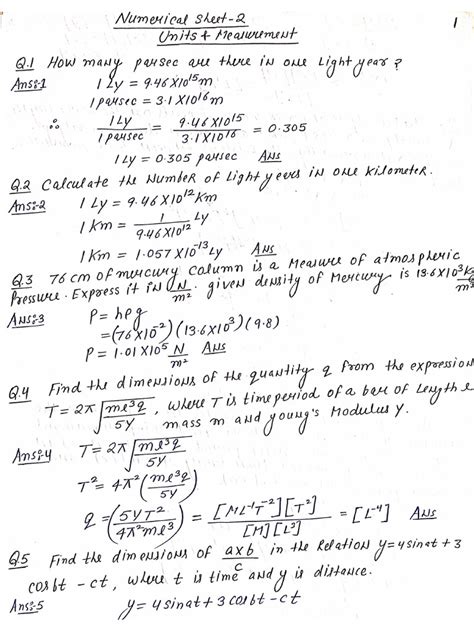 Numerical Sheet-2
1
Units & Measurement
Q.1 How many parsec are there in one Light year?
Ans:-1 1 Ly = 9.46X10¹⁵m
1 parsec = 3.1X10¹⁶m
∴ 1 Ly / 1 parsec = 9.46X10¹⁵ / 3.1X10¹⁶ = 0.305
1 Ly = 0.305 parsec Ans
Q.2 Calculate the Number of Light years in one kilometer.
Ans:-2 1 Ly = 9.46X10¹² Km
1 Km = 1 / 9.46X10¹² Ly
1 Km = 1.057X10⁻¹³ Ly Ans
Q.3 76 cm of mercury column is a Measure of atmospheric
Pressure. Express it in N/m². given density of Mercury is 13.6X10³ Kg/m³
Ans:-3 P = hρg
= (76X10⁻²)(13.6X10³)(9.8)
P = 1.01X10⁵ N/m² Ans
Q.4 Find the dimensions of the quantity q from the expression
T = 2π √(ml³q / 5Y), where T is time period of a bar of Length l
mass m and young's Modulus Y.
Ans:-4 T = 2π √(ml³q / 5Y)
T² = 4π² (ml³q / 5Y)
q = (5YT² / 4π²ml³) = [ML⁻¹T⁻²][T²] / [M][L³] = [L⁻⁴] Ans
Q.5 Find the dimensions of axb / c in the Relation y=4sinat+3
cosbt - ct, where t is time and y is distance.
Ans:-5 y = 4sinat + 3cosbt - ct